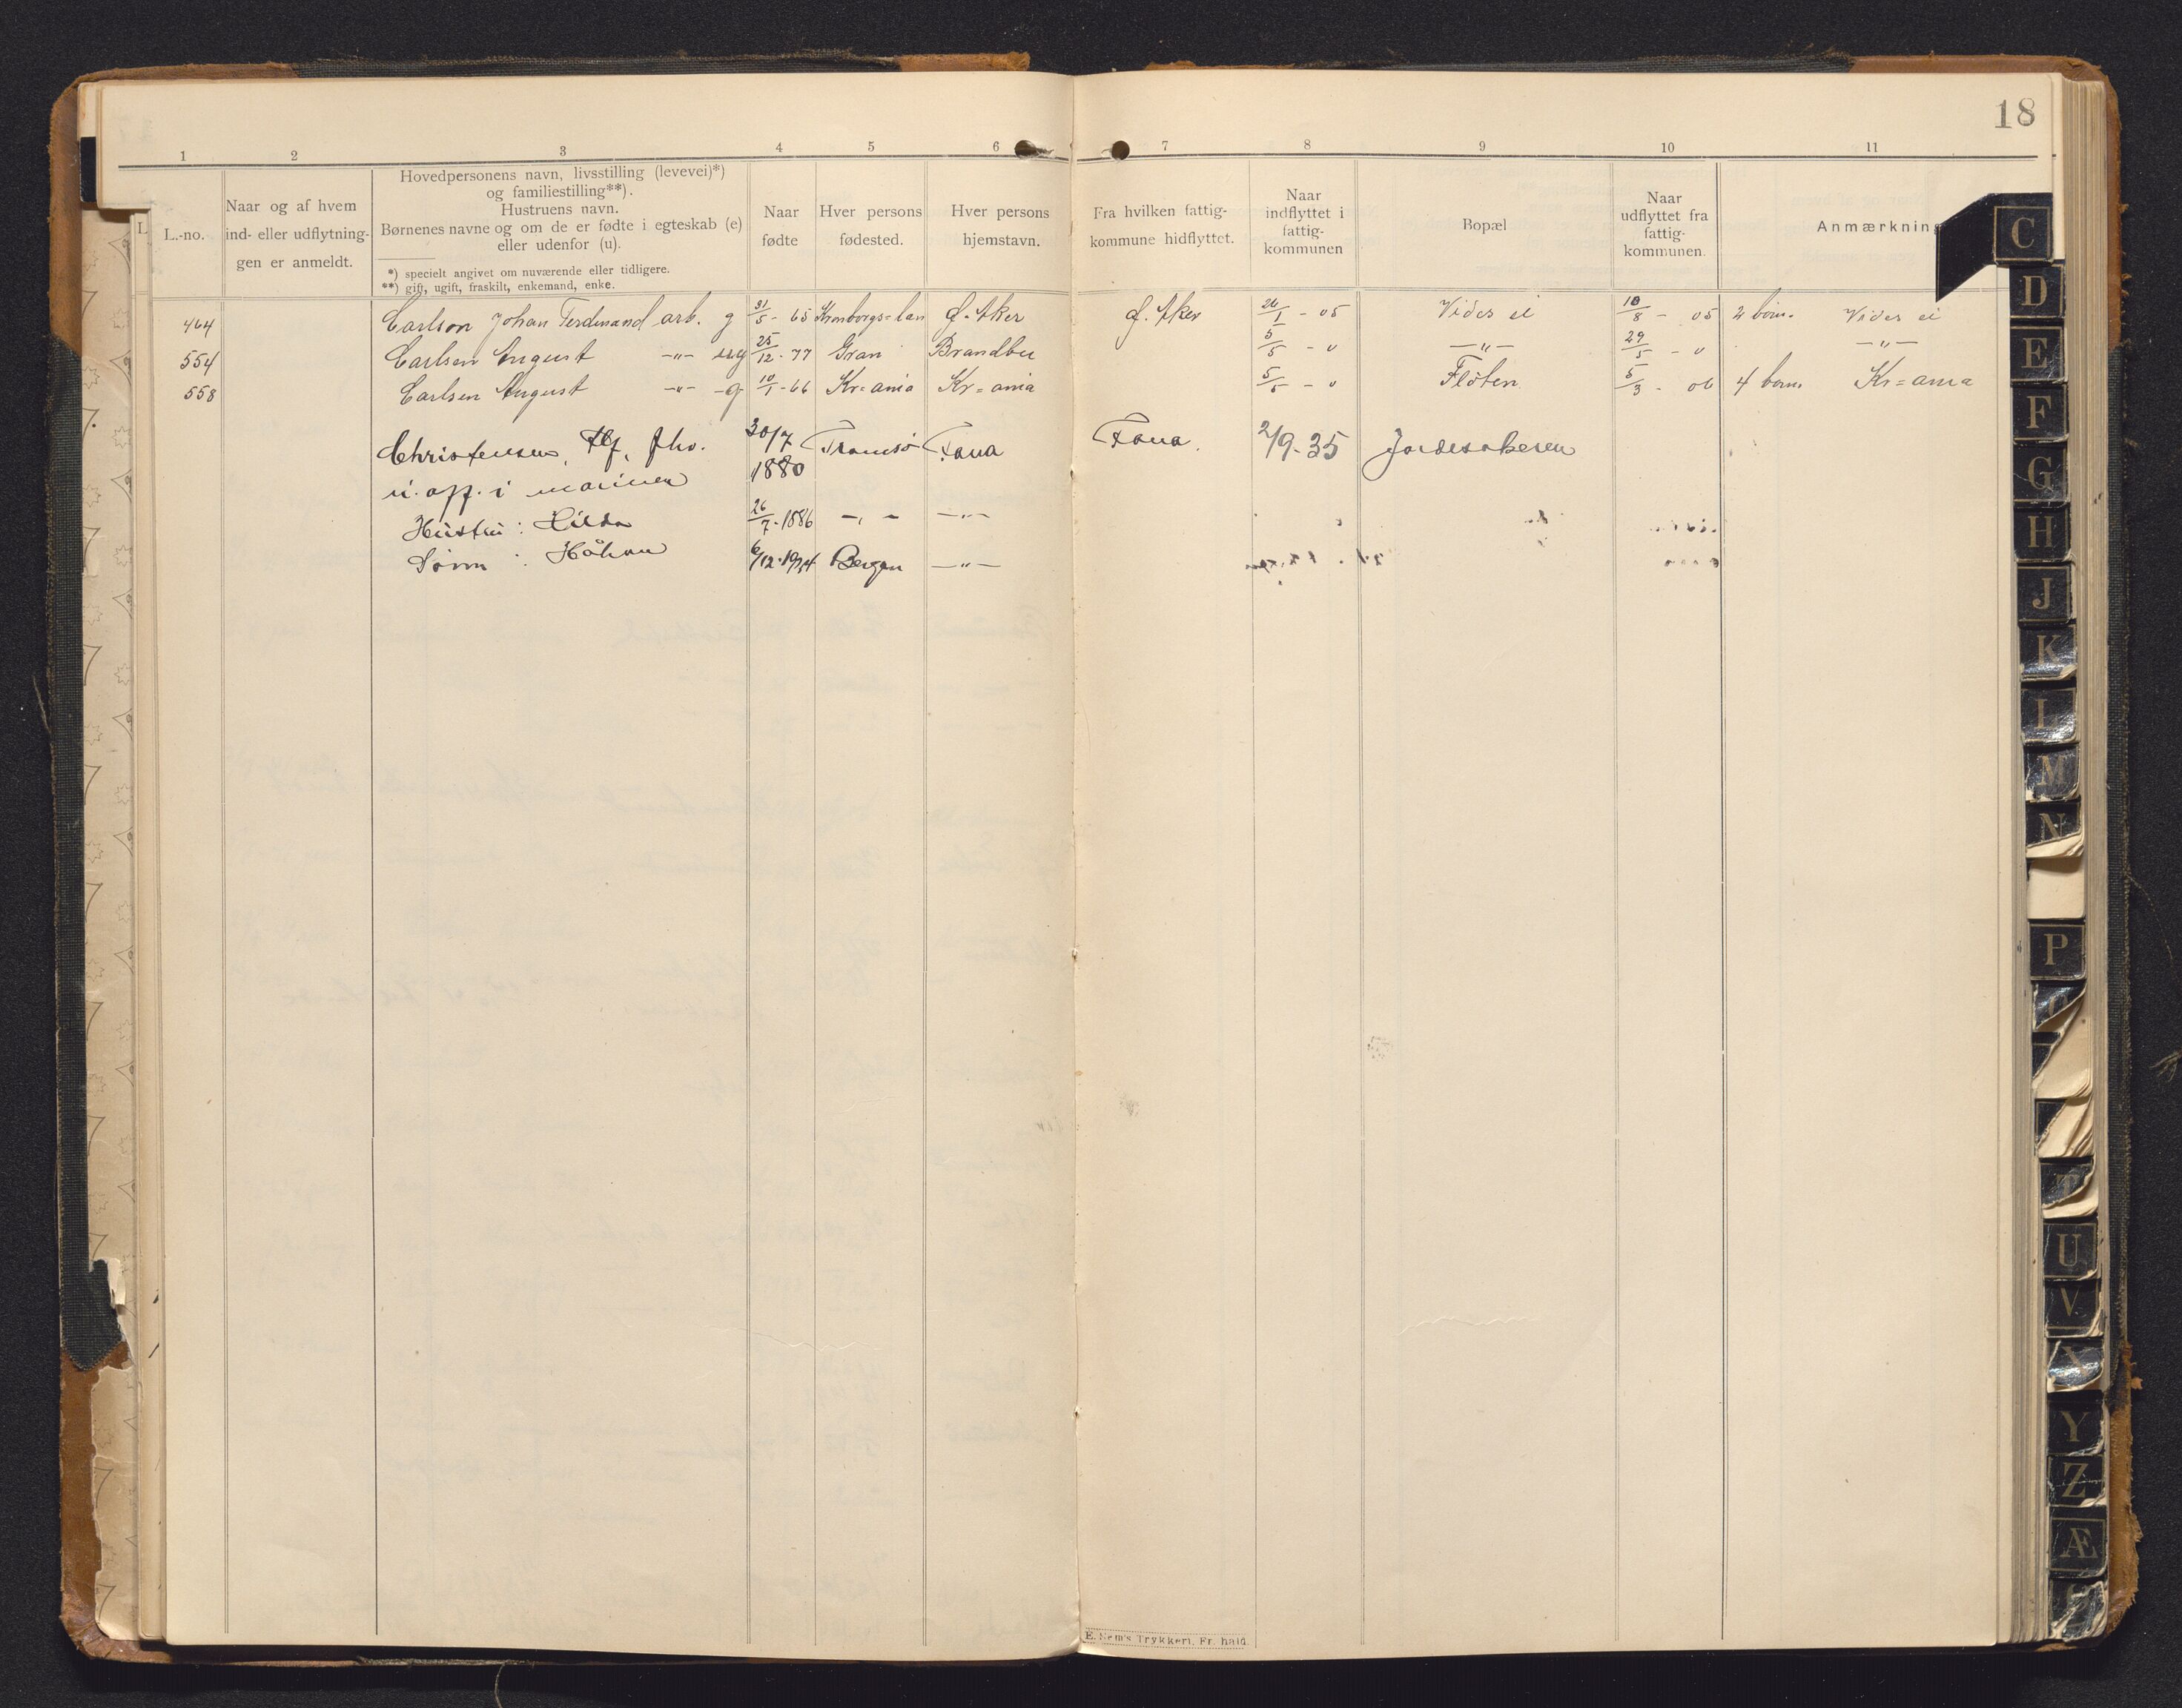 18
1 2 3 4 5 6 7 8 9 10 11
L.-no.
Naar og af hvem
ind- eller udflytning-
gen er anmeldt.
Hovedpersonens navn, livsstilling (levevei)*)
og familiestilling**).
Hustruens navn.
Børnenes navne og om de er fødte i egteskab (e)
eller udenfor (u).
*) specielt angivet om nuværende eller tidligere.
**) gift, ugift, fraskilt, enkemand, enke.
Naar
fødte
Hver persons
fødested.
Hver persons
hjemstavn.
Fra hvilken fattig-
kommune hidflyttet.
Naar
indflyttet i
fattig-
kommunen
Bopæl
Naar
udflyttet fra
fattig-
kommunen.
Anmærknin
464 Carlson Johan Ferdinand arb. g 31/5 - 65 Kronborgs=län Ø. Aker Ø. Aker 26/1 - 05 Vides ei 18/8 - 05 2 børn. Vides ei
554 Carlsen August -"- ug 25/12 - 77 Gran Brandbu 5/5 - " -"- 29/5 - " -"-
558 Carlsen August -"- g 10/1 - 66 Kr=ania Kr=ania 5/5 - " Fløten 5/3 - 06 4 børn. Kr=ania
Christensen, 30/7 Tromsø Fana Fana. 2/9-35 Jordesakeren
u.off. i marinen 1880
Hustru: Hilda 26/7-1886 -"- -"-
Sønn : Håkon 6/12-1924 Bergen -"-
E. Nem's Trykkeri, Fr.hald.
C
D
E
F
G
H
J
K
L
M
N
P
T
U
V
X
Y
Z
Æ